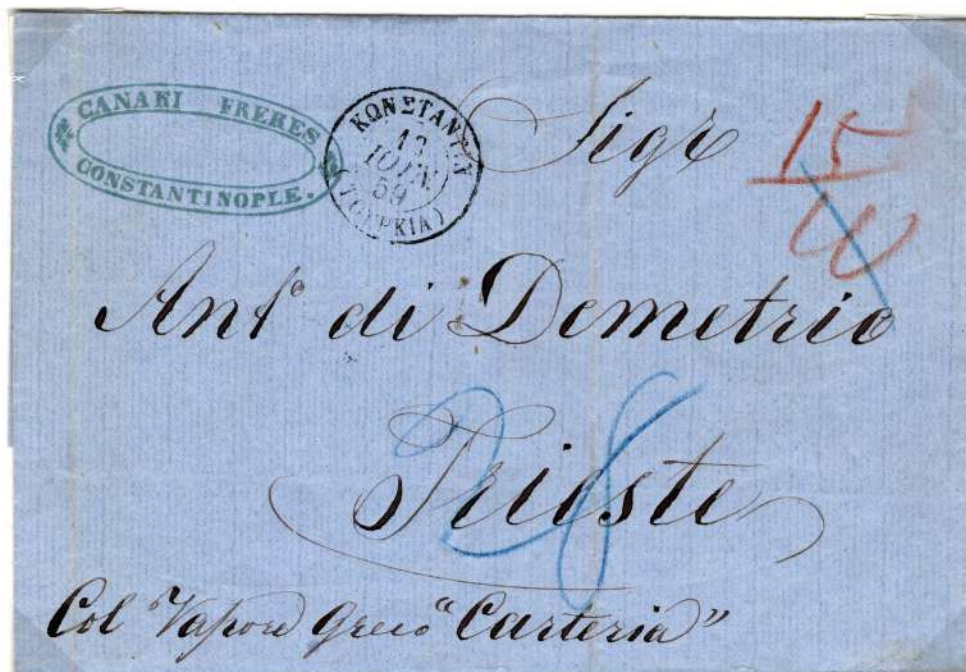 CANAKI FRERES
CONSTANTINOPLE.
ΚΩΝΣΤΑΝΤ/Ν
13
ΙΟΥΝ
59
(ΤΟΥΡΚΙΑ)
Sigr
15
Ant° di Demetrio
28
Trieste
Col Vapore Greco "Carteria"